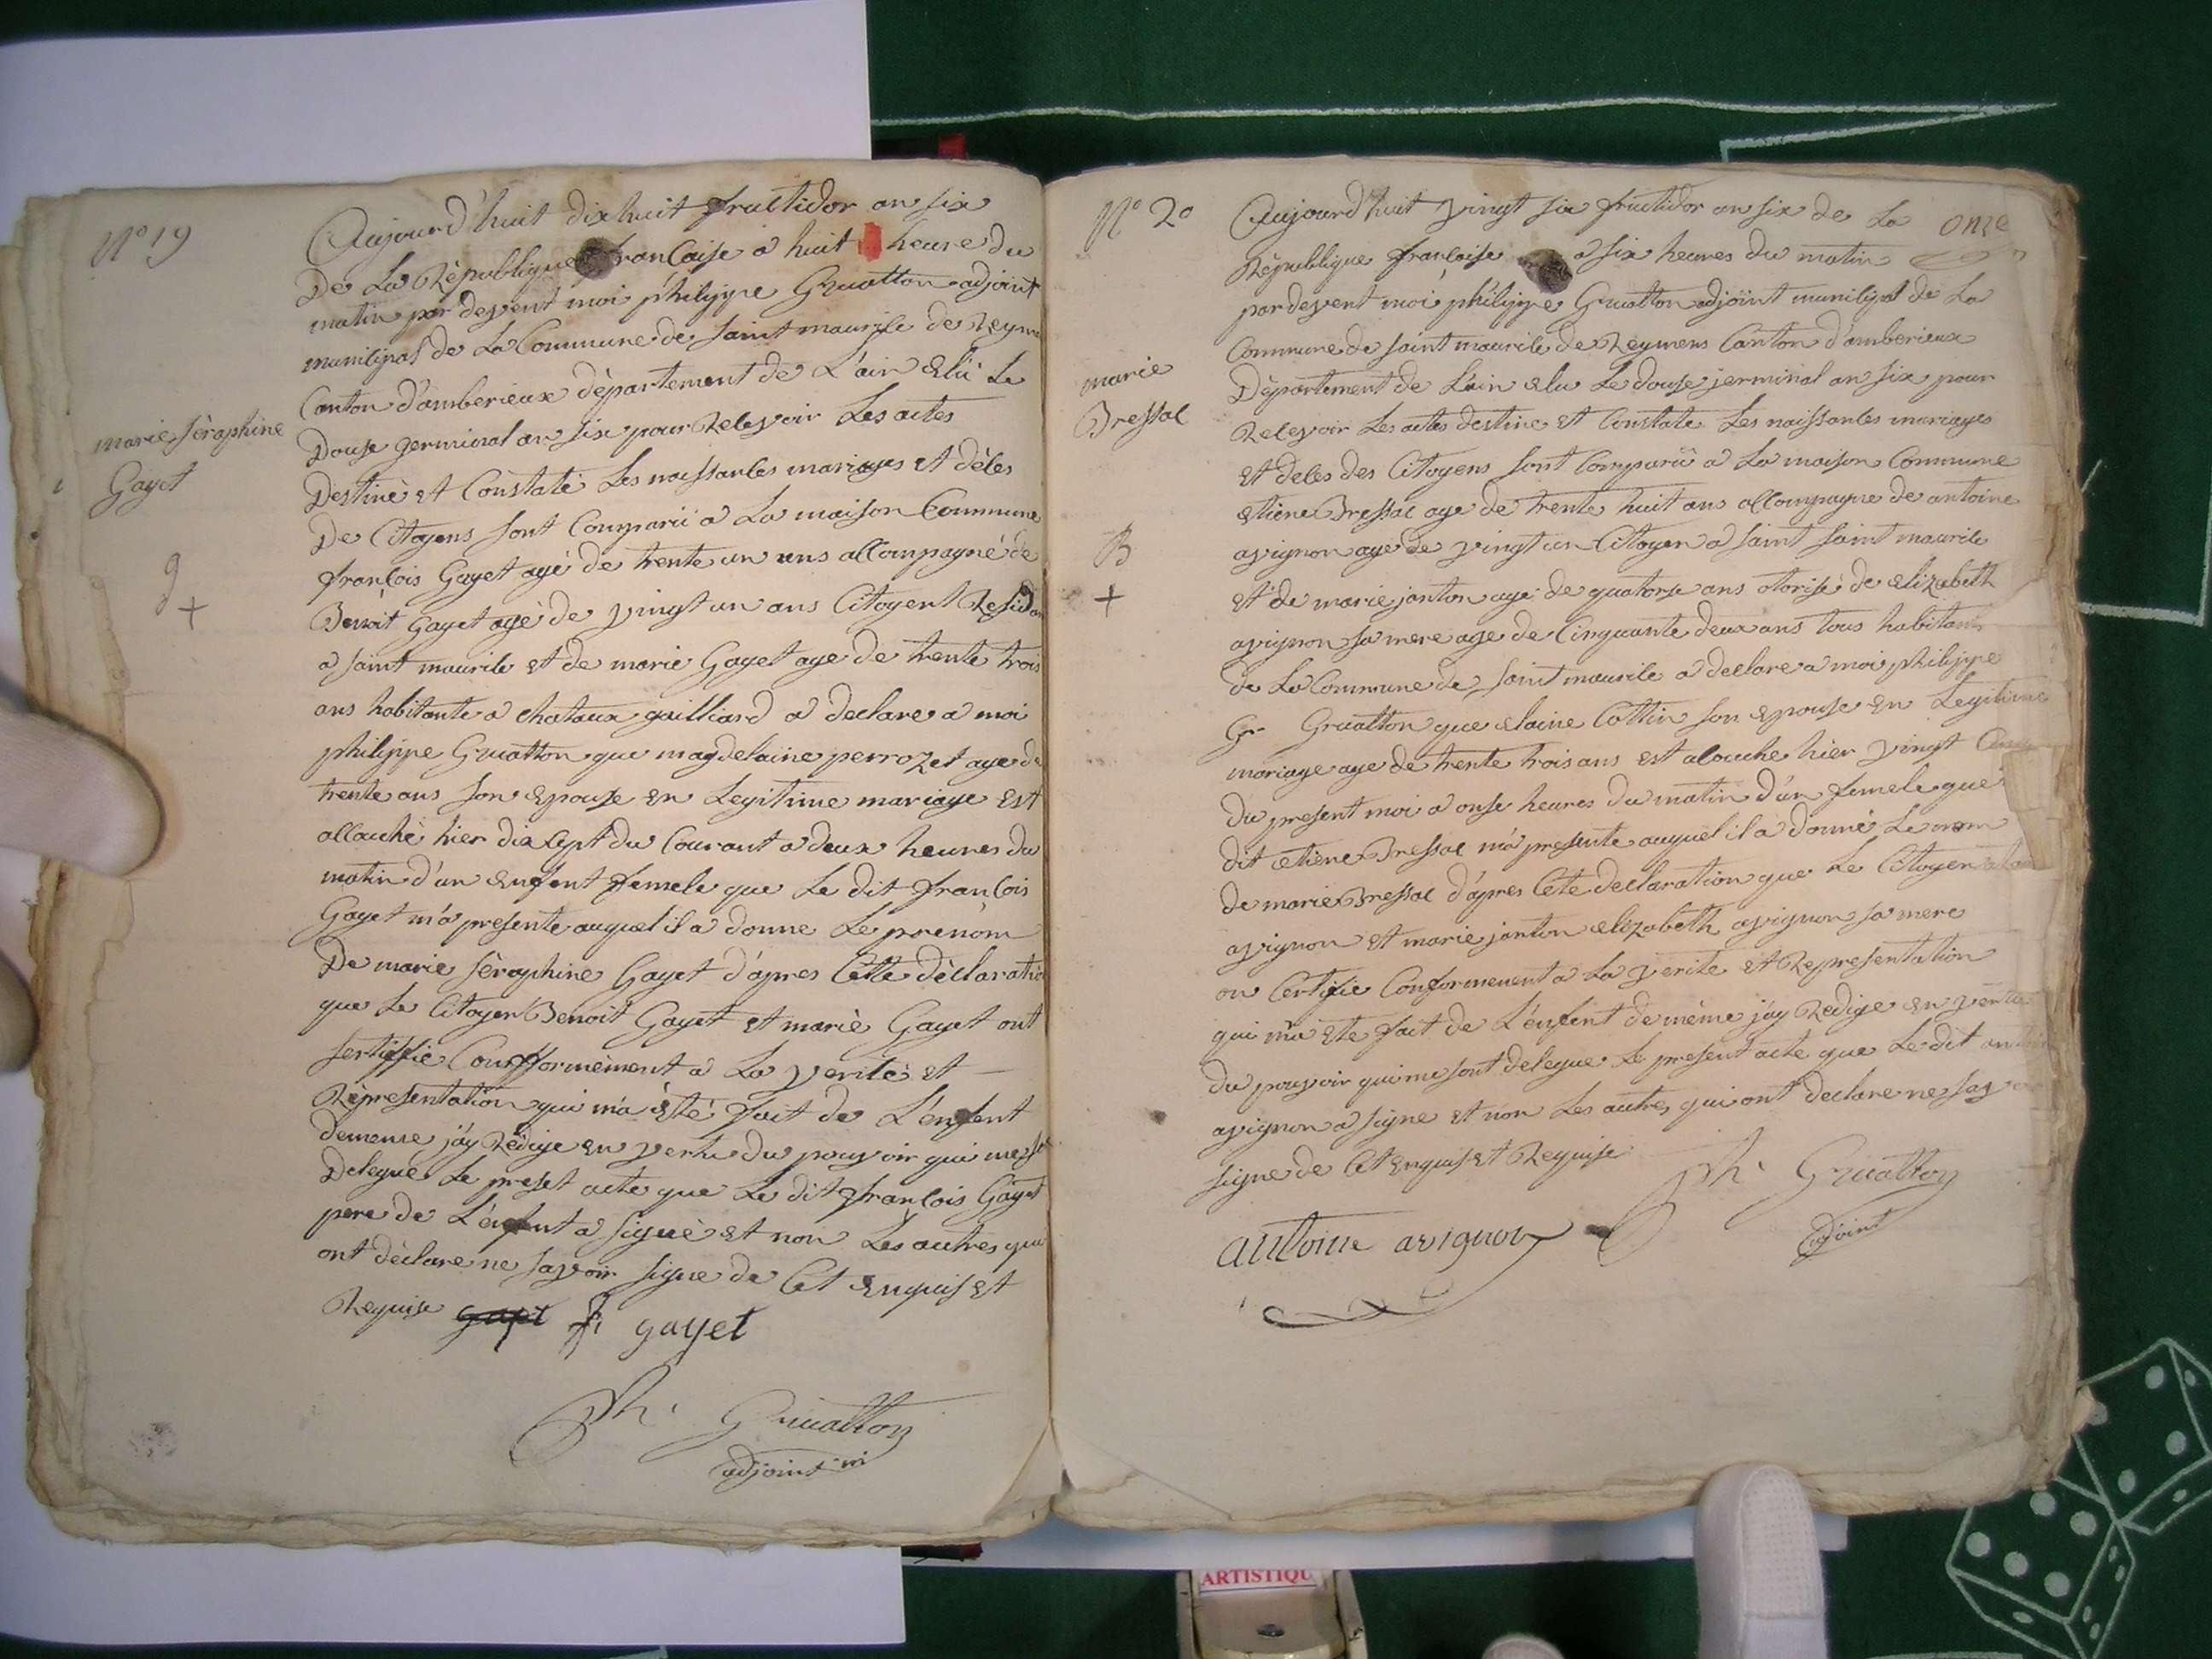 N° 19
Aujourd'huit dix huit fructidor an six
De La Rèpublique francaise a huit heure du
matin par devent moi philippe Gruatton adjoint
municipal de La Commune de saint maurile de Reyme
Canton d'amberieux dèpartement de L'ain Elü Le
Douse germinal an six pour Relevoir Les actes
marie sèraphine
Gayet
Destinè et Constatè Les naissanles mariages et dèles
De Citoyens sont Comparü a La maison Commune
g
+
francois Gayet agè de trente un ans allompagnè de
Benoit Gayet agè de vingt un ans Citoyent Residan
a saint maurile et de marie Gayet age de trente trois
ans habitante a chataux gailliard a declare a moi
philippe Gruatton que magdelaine perrozet age de
trente ans son Epouse En Legitime mariage Est
allouchè hier dix sept du Courant a deux heures du
matin d'un Enfent femele que Le dit francois
Gayet m'a presente auquel il a donne Le prenom
De marie sèraphine Gayet d'apres Cette dèclaratio
que Le Citoyen Benoit Gayet et mariè Gayet ont
sertiffie Confformèment a La veritè et
Rèpresentation qui m'a Etè fait de L'enfent
dememe j'ay Rèdige En vertu du pouvoir qui me st
Deleguè Le preset acte que Le dit francois Gayet
pere de L'enfent a signè et non Les autres qui
ont dèclare ne savoir signe de Cet Enquis et
Requise gayet f gayet
Ph. Gruatton
adjoint m
N° 20
onze
Aujourd'huit vingt six fructidor an six de La
Rèpublique francoise a six heures du matin
par devent moi philippe Gruatton adjoint municipal de La
Commune de saint maurile de Reymens Canton d'amberieux
marie
Bressal
Dèpartement de L'ain Elu Le douse jerminal an six pour
Relevoir Les actes destine et Constate Les naissanles mariages
et deles des Citoyens sont Comparü a La maison Commune
Etiene Bressal age de trente huit ans allompagne de antoine
B
+
avignon agè de vingt un Citoyen a saint saint maurile
et de marie janton age de quatorse ans otorisè de Elizabeth
avignon sa mere age de Cinquante deux ans tous habitans
de La Commune de saint maurile a declare a moi philippe
Gr Gruatton que Elaine Cottin son Epouse En Legitime
mariage age de trente trois ans est alouche hier vingt
du present moi a onse heures du matin d'un femele que
dit etiene Bressal m'a presente auquel il a donnè Le nom
de marie Bressal d'apres Cete declaration que Le Citoyen
avignon et marie janton elizabeth avignon sa mere
on Certifie Conformement a La verite et Representation
qui m'a Ete fait de L'enfent de mème j'ay Redige En vertu
du pouvoir qui me sont delegue Le present acte que Le dit
avignon a signe et non Les autres qui ont declare ne sav
signe de Cet Enquis et Requise
Ph. Gruatton
adjoint
antoine avignon
ARTISTIQU